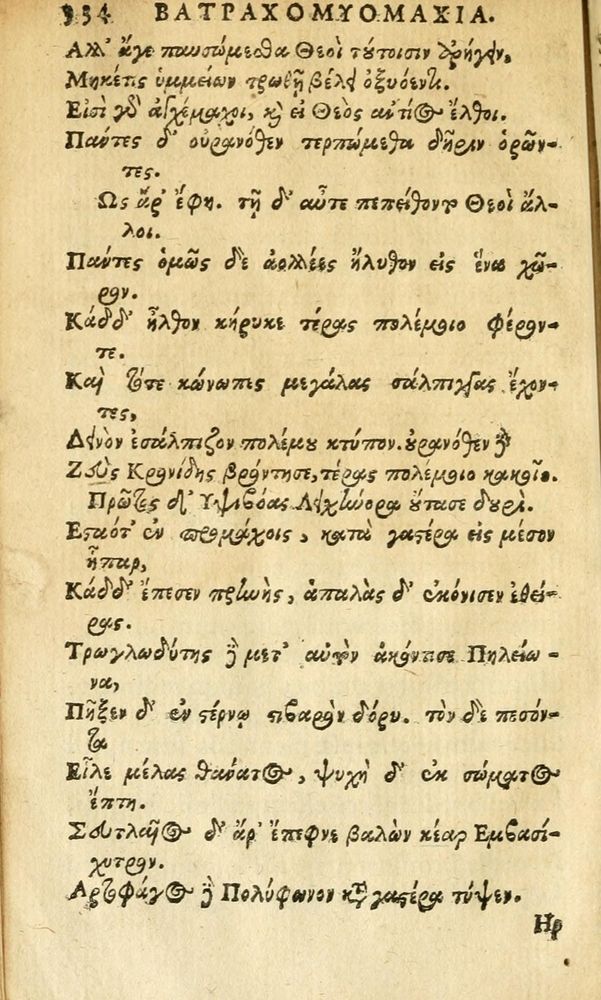 334 ΒΑΤΡΑΧΟΜΥΟΜΑΧΙΑ.
Ἀλλ' ἄγε παυσώμεσθα Θεοὶ τούτοισιν ἀρήγειν,
Μηκέτις ὑμμείων τρωθῇ βέλει ὀξυόεντι.
Εἰσὶ γὰρ ἀγχέμαχοι, καὶ εἰ Θεὸς ἀντίος ἔλθοι.
Πάντες δ' οὐρανόθεν τερπώμεθα δῆριν ὁρῶν-
τες.
Ως ἄρ' ἔφη. τῇ δ' αὖτε πεπείθοντο Θεοὶ ἄλ-
λοι.
Πάντες ὁμῶς δὲ ἀολλέες ἤλυθον εἰς ἕνα χῶ-
ρον.
Κάδδ' ἦλθον κήρυκε τέρας πολέμοιο φέρον-
τε.
Καὶ τότε κώνωπες μεγάλας σάλπιγγας ἔχον-
τες,
Δεινὸν ἐσάλπιζον πολέμου κτύπον. οὐρανόθεν δὲ
Ζεὺς Κρονίδης βρόντησε, τέρας πολέμοιο κακοῖο.
Πρῶτος δ' Ὑψιβόας Λειχήνορα οὔτασε δουρὶ.
Εσταότ' ἐν προμάχοις, κατὰ γαστέρα εἰς μέσον
ἧπαρ,
Κάδδ' ἔπεσεν πρηνὴς, ἁπαλὰς δ' ἐκόνισεν ἐθεί-
ρας.
Τρωγλωδύτης δὲ μετ' αὐτὸν ἀκόντισε Πηλείω-
να,
Πῆξεν δ' ἐν στέρνῳ στιβαρὸν δόρυ. τὸν δὲ πεσόν-
τα
Εἷλε μέλας θάνατος, ψυχὴ δ' ἐκ σώματος
ἔπτη.
Σευτλαῖος δ' ἄρ' ἔπεφνε βαλὼν κέαρ Εμβασί-
χυτρον.
Ἀρτοφάγος δὲ Πολύφωνον κατὰ γαστέρα τύψεν.
Ηρ